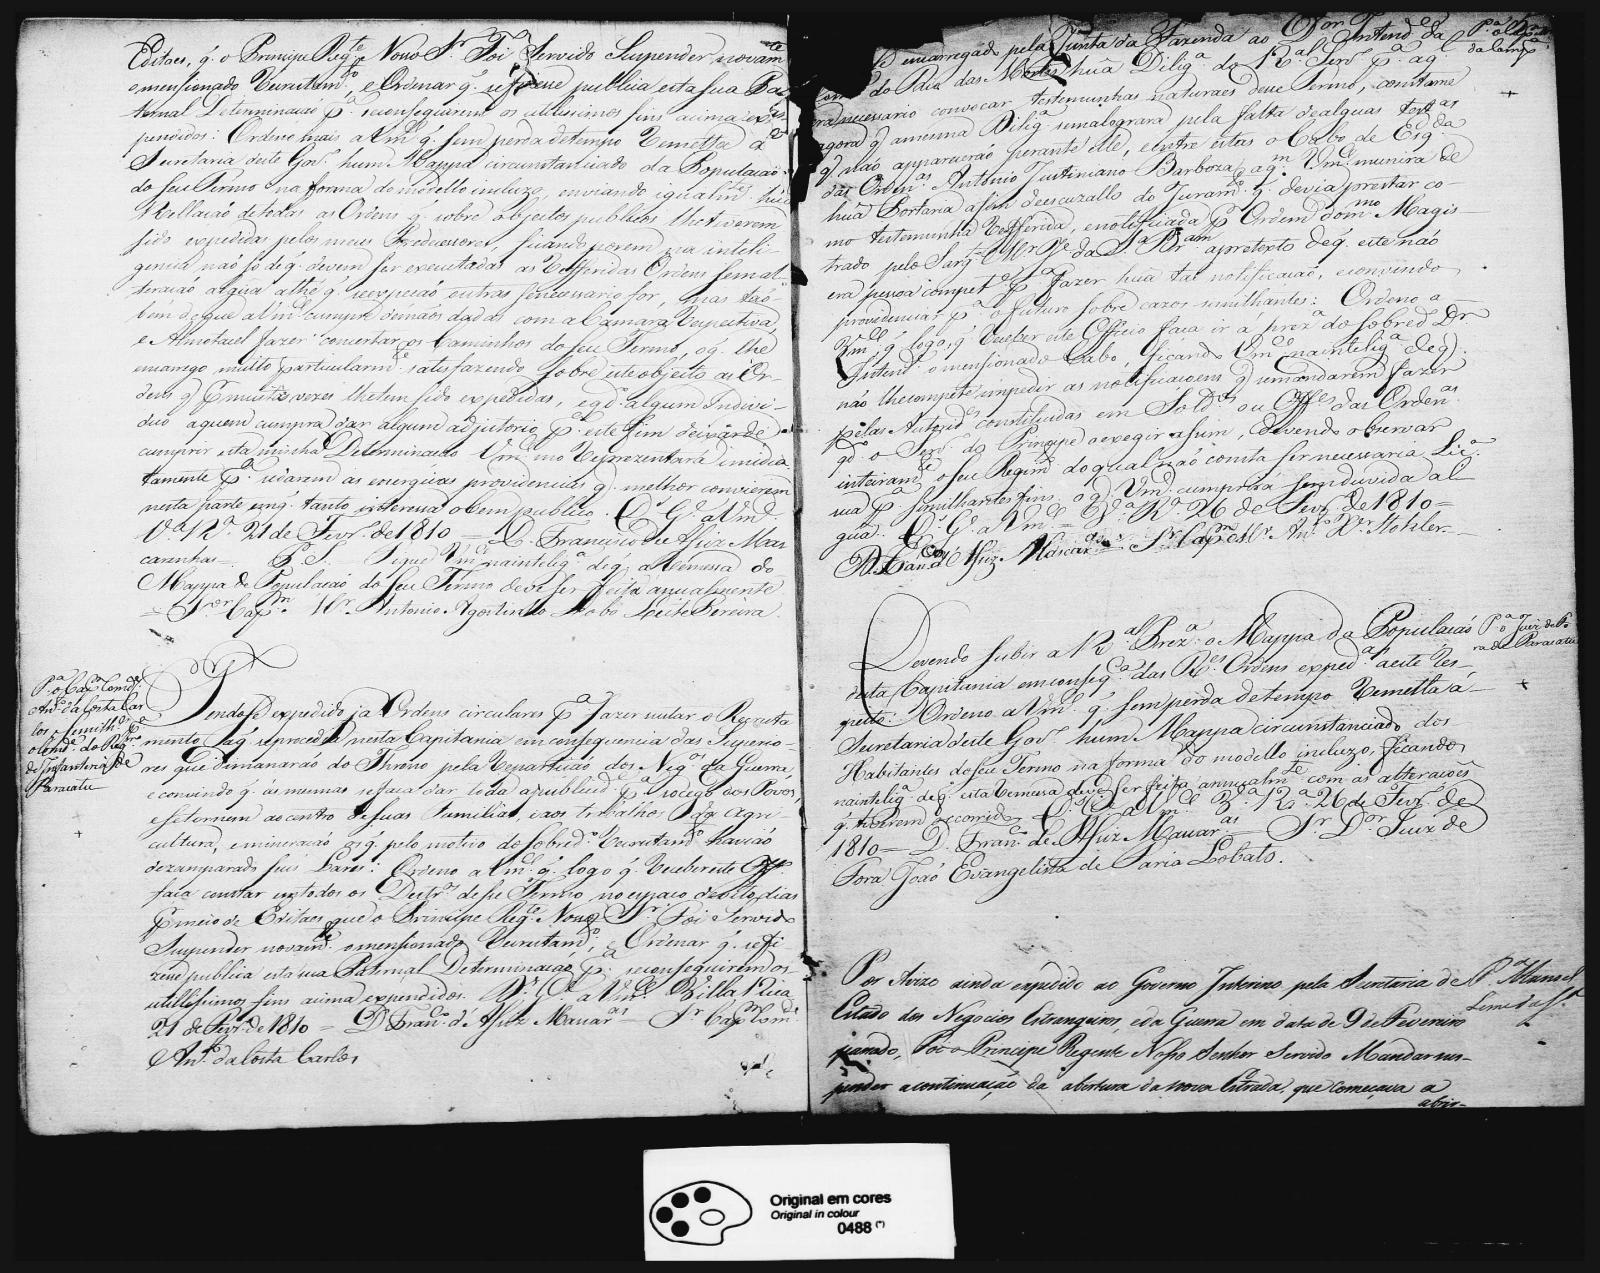 Editaes, q̃. o Principe Reg.te Nosso S.r Foi Servido Suspender novam.te
o mensionado Recrutam.to, e Ordenar q̃. se fizesse publica esta sua Pa-
ternal Determinaçaõ p.a se conseguirem os utilissimos fins acima ex-
pendidos: Ordeno mais a Vm.ce q̃. sem perda de tempo Remetta á
Secretaria deste Gov.o hum Mappa circunstanciado da Populaçaõ
do seu Termo na forma do modello incluzo, enviando igualm.te huã
Rellaçaõ de todas as Ordens q̃. sobre objectos publicos lhe tiverem
sido expedidas pelos meus Predecessores, ficando porem na inteli-
gencia naõ só de q̃. devem ser executadas as Refferidas Ordens sem al-
teraçaõ algũa athé q̃. se expeçaõ outras se necessario for, mas taõ-
bem de que a Vm.ce cumpre de maõs dadas com a Camara Respectiva,
e Almotacel fazer concertar os Caminhos do seu Termo, o q̃. lhe
encarrego muito particularm.te satisfazendo sobre este objecto as Or-
dens q̃ p.r muitas vezes lhe tem sido expedidas, e q.do algum Indivi-
duo a quem cumpra dar algum adjutorio p.a este fim deixar de
cumprir esta minha Determinaçaõ Vm.ce mo Reprezentará imidia-
tamente p.a se darem as energicas providencias q̃. melhor convierem
nesta parte em q̃. tanto interessa o bem publico. D.s G.e a Vm.ce
V.a R.a 21 de Fevr.o de 1810 = D. Francisco de Assiz Mas
carenhas = P.S. Fique Vm.ce na intelig.a de q̃. a Remessa do
Mappa de Populaçaõ do seu Termo deve ser feita anualmente
= S.or Cap.m M.r Antonio Agostinho Lobo Leite Pereira.
P.a o Cap.m Com.de
Ant.o da Costa Car
los e semilh.te p.a
o Com.de do Reg.to
de Infantaria de
Paracatu
Tendo se expedido já Ordens circulares p.a fazer sustar o Recruta
mento a q̃ se procedia nesta Capitania em consequencia das Superio-
res que dimanaraõ do Throno pela Repartiçaõ dos Neg.os da Guerra,
e convindo q̃. as mesmas se faça dar toda a publicid.e p.a socego dos Povos,
e se tornem ao centro de suas Familias, e aos trabalhos da Agri-
cultura, e mineraçaõ os q̃. pelo motivo do sobred.o Recrutam.to haviaõ
dezamparado seus Lares: Ordeno a Vm.ce q̃. logo q̃. Receber este Off.o
faça constar em todos os Destr.os de seu Termo no espaço de oito dias
p.r meio de Editaes que o Principe Reg.te Nosso S.r Foi Servido
Suspender novam.te o mensionado Recrutam.to, e Ordenar q̃. se fi-
zesse publica esta sua Paternal Determinaçaõ p.a se conseguirem os
utilissimos fins acima expendidos. D.s G.e a Vm.ce Villa Rica
21 de Fevr.o de 1810 = D. Fran.co d' Assiz Mascar.as = S.r Cap.m Com.de
Ant.o da Costa Carlos
P.a o Cap.m
da Comp.a
encarregado pela Junta da Fazenda ao D.or Intend.e da
do Rio das Mortes huã Dilig.a do R.al Serv.o p.a a q.l
era necessario convocar testemunhas naturaes desse Termo, consta me
agora q̃ a mesma Dilig.a se malograra pela falta de algũas test.as
q̃ naõ appareceraõ perante elle, e entre estas o Cabo de Esq.da
das Orden.as Antonio Justiniano Barboza, a q.m Vm.ce munira de
huã Portaria a fim de escuzallo do Juram.to q̃. devia prestar co-
mo testemunha Refferida, e notificada p.r Ordem do m.mo Magis-
trado pelo Sarg.to Mor apretexto de q̃. este naõ
era pessoa compet.e p.a fazer huã tal notificaçaõ, e convindo
providenciar p.a o futuro sobre cazos similhantes: Ordeno a
Vm.ce q̃. logo q̃. Receber este Officio faça ir á prez.a do sobred.o Dr.
Intend.e o mensionado Cabo, ficando Vm.ce na intelig.a de q̃.
naõ lhe compete impedir as notificaçoens q̃ se mandarem fazer
pelas Autorid.es constituidas em Sold.os ou Off.es das Orden.as
q.do o Serv.o do Principe o exegir assim, devendo observar
inteiram.te o seu Regim.to do qual naõ consta ser necessaria Lic.a
sua p.a similhantes fins, o q̃. Vm.ce cumprirá sem duvida al
gũa. D.s G.e a Vm.ce = V.a R.a 26 de Fevr.o de 1810 =
D. Fran.co d' Assiz Mascar.as = S.r Cap.m M.r An.to Mohler
P.a o Juiz de Fo
ra de Paracatu
Devendo subir a R.al Prez.a o Mappa da Populaçaõ
desta Capitania em conseq.a das R.es Ordens exped.as a este Res-
peito: Ordeno a Vm.ce q̃. sem perda de tempo Remetta á
Secretaria deste Gov.o hum Mappa circunstanciado dos
Habitantes do seu Termo na forma do modello incluzo, ficando
na intelig.a de q̃. esta Remessa deve ser feita annualm.te com as alteraçoẽs
q̃. tiverem occorrido. D.s G.e a Vm.ce V.a R.a 26 de Fevr.o de
1810 = D. Fran.co de Assiz Mascar.as = S.r D.or Juiz de
Fora Joaõ Evangelista de Faria Lobato.
P.a Manoel
Por Avizo ainda expedido ao Governo Interino pela Secretaria de
Estado dos Negocios Estrangeiros, e da Guerra em data de 9 de Fevereiro
passado, foi o Principe Regente Nosso Senhor Servido Mandar sus-
pender a continuaçaõ da abertura da nova Estrada, que começava a
abrir-
Original em cores
Original in colour
0488 (*)